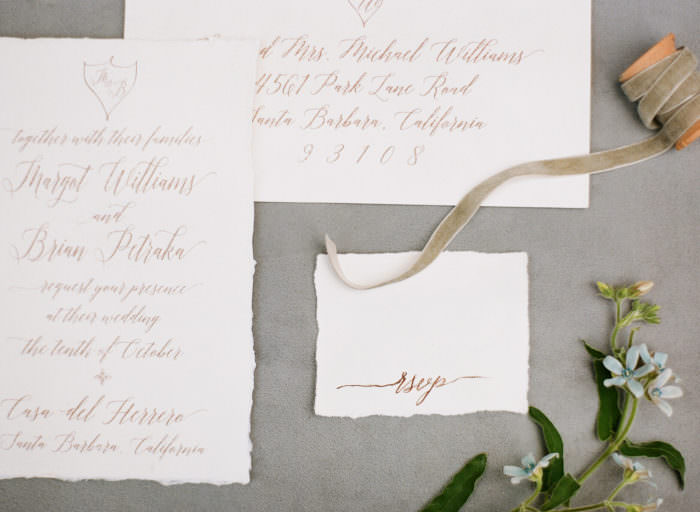 together with their families
Margot Williams
and
Brian Petraka
request your presence
at their wedding
the tenth of October
Casa del Herrero
Santa Barbara, California
Mrs. Michael Williams
4561 Park Lane Road
Santa Barbara, California
93108
rsvp